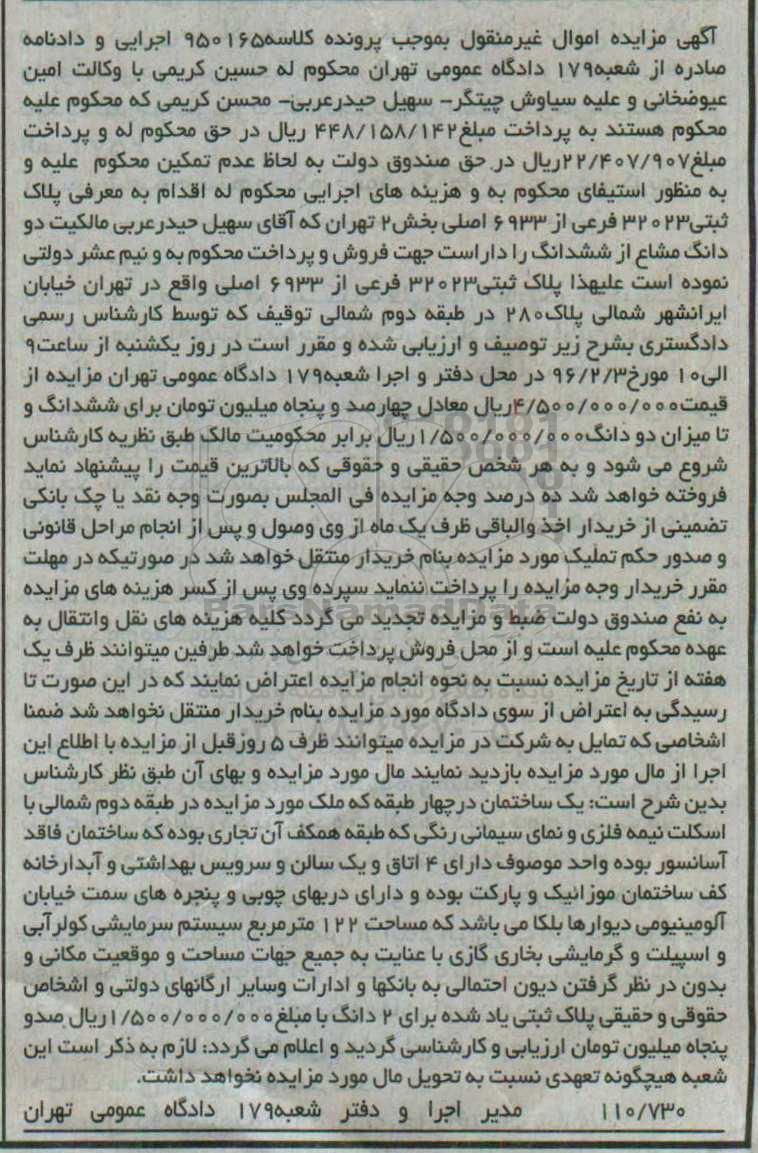 آگهی مزایده اموال غیرمنقول بموجب پرونده کلاسه۹۵۰۱۶۵ اجرایی و دادنامه
صادره از شعبه۱۷۹ دادگاه عمومی تهران محکوم له حسین کریمی با وکالت امین
عیوضخانی و علیه سیاوش چیتگر- سهیل حیدرعربی- محسن کریمی که محکوم علیه
محکوم هستند به پرداخت مبلغ۴۴۸/۱۵۸/۱۴۲ ریال در حق محکوم له و پرداخت
مبلغ۲۲/۴۰۷/۹۰۷ریال در حق صندوق دولت به لحاظ عدم تمکین محکوم علیه و
به منظور استیفای محکوم به و هزینه های اجرایی محکوم له اقدام به معرفی پلاک
ثبتی۳۲۰۲۳ فرعی از ۶۹۳۳ اصلی بخش۲ تهران که آقای سهیل حیدرعربی مالکیت دو
دانگ مشاع از ششدانگ را داراست جهت فروش و پرداخت محکوم به و نیم عشر دولتی
نموده است علیهذا پلاک ثبتی۳۲۰۲۳ فرعی از ۶۹۳۳ اصلی واقع در تهران خیابان
ایرانشهر شمالی پلاک۲۸۰ در طبقه دوم شمالی توقیف که توسط کارشناس رسمی
دادگستری بشرح زیر توصیف و ارزیابی شده و مقرر است در روز یکشنبه از ساعت۹
الی۱۰ مورخ۹۶/۲/۳ در محل دفتر و اجرا شعبه۱۷۹ دادگاه عمومی تهران مزایده از
قیمت۴/۵۰۰/۰۰۰/۰۰۰ریال معادل چهارصد و پنجاه میلیون تومان برای ششدانگ و
تا میزان دو دانگ۱/۵۰۰/۰۰۰/۰۰۰ریال برابر محکومیت مالک طبق نظریه کارشناس
شروع می شود و به هر شخص حقیقی و حقوقی که بالاترین قیمت را پیشنهاد نماید
فروخته خواهد شد ده درصد وجه مزایده فی المجلس بصورت وجه نقد یا چک بانکی
تضمینی از خریدار اخذ والباقی ظرف یک ماه از وی وصول و پس از انجام مراحل قانونی
و صدور حکم تملیک مورد مزایده بنام خریدار منتقل خواهد شد در صورتیکه در مهلت
مقرر خریدار وجه مزایده را پرداخت ننماید سپرده وی پس از کسر هزینه های مزایده
به نفع صندوق دولت ضبط و مزایده تجدید می گردد کلیه هزینه های نقل وانتقال به
عهده محکوم علیه است و از محل فروش پرداخت خواهد شد طرفین میتوانند ظرف یک
هفته از تاریخ مزایده نسبت به نحوه انجام مزایده اعتراض نمایند که در این صورت تا
رسیدگی به اعتراض از سوی دادگاه مورد مزایده بنام خریدار منتقل نخواهد شد ضمنا
اشخاصی که تمایل به شرکت در مزایده میتوانند ظرف ۵ روزقبل از مزایده با اطلاع این
اجرا از مال مورد مزایده بازدید نمایند مال مورد مزایده و بهای آن طبق نظر کارشناس
بدین شرح است: یک ساختمان درچهار طبقه که ملک مورد مزایده در طبقه دوم شمالی با
اسکلت نیمه فلزی و نمای سیمانی رنگی که طبقه همکف آن تجاری بوده که ساختمان فاقد
آسانسور بوده واحد موصوف دارای ۴ اتاق و یک سالن و سرویس بهداشتی و آبدارخانه
کف ساختمان موزائیک و پارکت بوده و دارای دربهای چوبی و پنجره های سمت خیابان
آلومینیومی دیوارها بلکا می باشد که مساحت ۱۲۲ مترمربع سیستم سرمایشی کولرآبی
و اسپیلت و گرمایشی بخاری گازی با عنایت به جمیع جهات مساحت و موقعیت مکانی و
بدون در نظر گرفتن دیون احتمالی به بانکها و ادارات وسایر ارگانهای دولتی و اشخاص
حقوقی و حقیقی پلاک ثبتی یاد شده برای ۲ دانگ با مبلغ۱/۵۰۰/۰۰۰/۰۰۰ریال صدو
پنجاه میلیون تومان ارزیابی و کارشناسی گردید و اعلام می گردد: لازم به ذکر است این
شعبه هیچگونه تعهدی نسبت به تحویل مال مورد مزایده نخواهد داشت.
۱۱۰/۷۳۰ مدیر اجرا و دفتر شعبه۱۷۹ دادگاه عمومی تهران
ParsNamadData